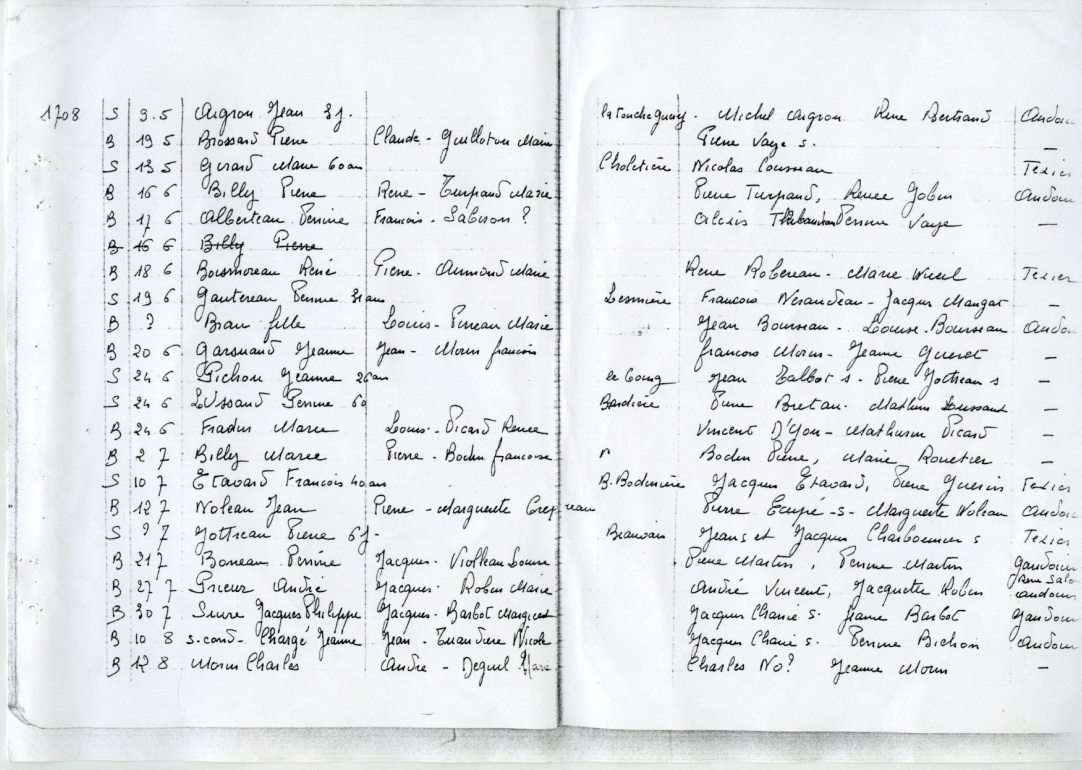 1708 S 9.5 Aigron Jean 3j. la Touche guery. Michel Aigron Rene Bertrand Andoui
B 19 5 Brossard Pierre Claude - Guilloton Marie Pierre Vaye s. —
S 13 5 Girard Marie 60 ans Choletière Nicolas Cousseau Texier
B 16 6 Billy Pierre Rene - Turpaud Marie Pierre Turpaud, Renee Jobin Andoui
B 17 6 Alberteau Perrine Francois - ? Alexis Perrine Vaye —
B 16 6 Billy Pierre
B 18 6 Boismoreau René Pierre - Aumond Marie Rene Robereau - Marie Texier
S 19 6 Gautereau Perrine 31 ans Francois Neraudeau - Jacques Maugat —
B ? Brau fille Louis - Marie Jean Bourseau - Louise Bourseau Andoui
B 20 6 Garsuaud Jeanne Jean - Morin francois francois Morin - Jeanne Gueret —
S 24 6 Pichon Jeanne 26 ans Jean Talbot s - Pierre Jottreau s —
S 24 6 Lussaud Perrine 60 Bardière Pierre Bretau. Mathurin Lussaud —
B 24 6 Fradin Marie Louis - Picard Renee Vincent D'Yon - Mathurin Picard —
B 2 7 Billy Marie Pierre - Bodin francoise Bodin Pierre, Marie Rouetier —
S 10 7 Etavard Francois 40 ans B. Bodinière Jacques Etavard, Pierre Guerin Texier
B 12 7 Noleau Jean Pierre - Marguerite Crepreau Pierre Ecupé - s - Marguerite Noleau Andoui
S ? 7 Jottreau Pierre 6j - Beauvais Jean s et Jacques Charbonnier s Texier
B 21 7 Bonneau Perrine Jacques - Violleau Louise Pierre Martin, Perrine Martin gaudouin
B 27 7 Prieur André Jacques - Robin Marie André Vincent, Jacquette Robin andouin
B 30 7 Suire Jacques Philippe Jacques - Barbot Margueri Jacques Charié s. Jeanne Barbot gaudouin
B 10 8 s. cond - Chargé Jeanne Jean - Nicole Jacques Charié s. Perrine Bichon Andouin
B 12 8 Morin Charles Andre - Marie Charles No? Jeanne Morin —